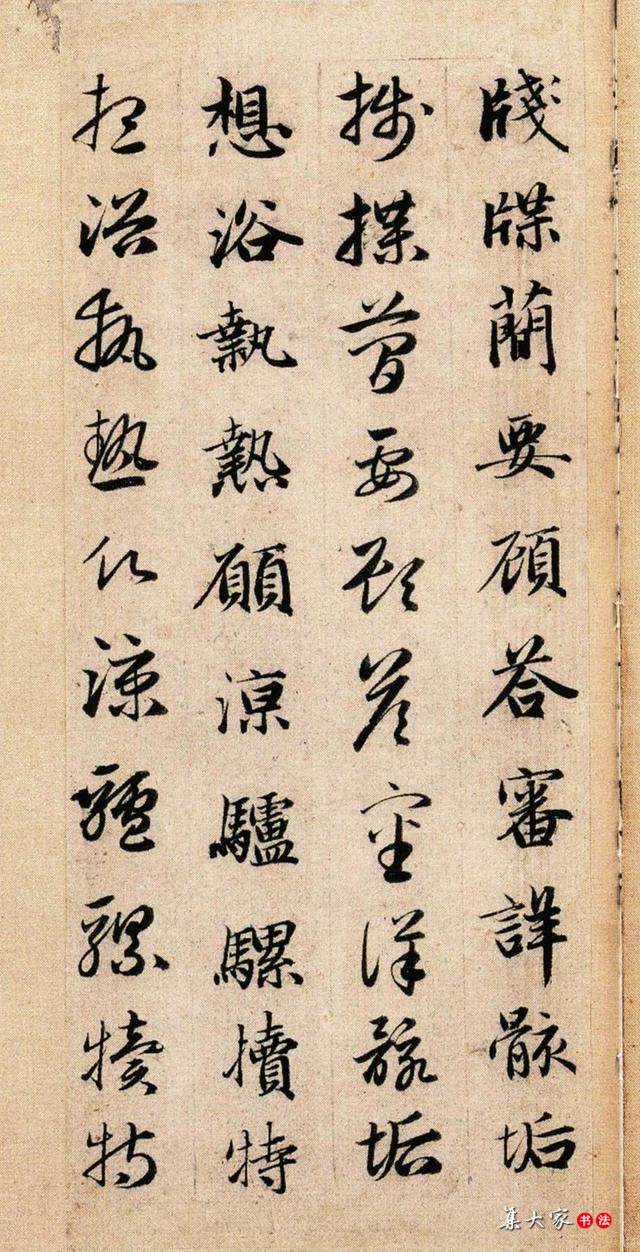 牋牒簡要顧荅審詳骸垢
牋牒簡要顧荅審詳骸垢
想浴執熱願涼驢騾犢特
想浴執熱願涼驢騾犢特
集大家书法